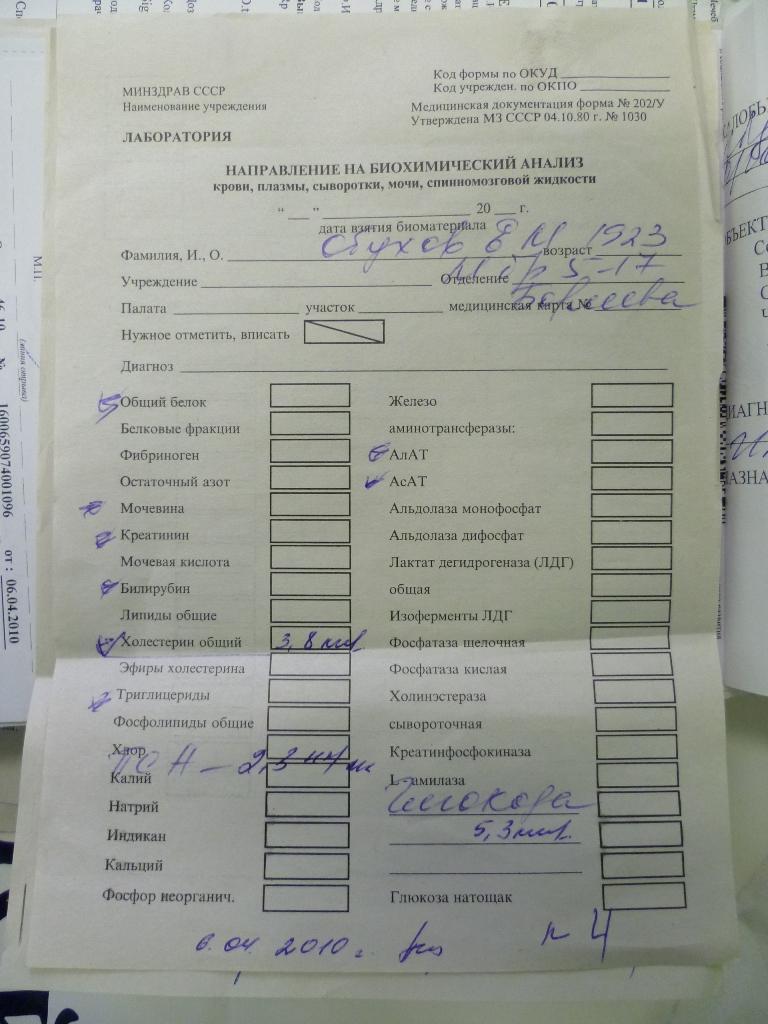 Код формы по ОКУД
Код учрежден. по ОКПО
МИНЗДРАВ СССР
Наименование учреждения
Медицинская документация форма № 202/У
Утверждена МЗ СССР 04.10.80 г. № 1030
ЛАБОРАТОРИЯ
НАПРАВЛЕНИЕ НА БИОХИМИЧЕСКИЙ АНАЛИЗ
крови, плазмы, сыворотки, мочи, спинномозговой жидкости
" __ " ____ 20 __ г.
дата взятия биоматериала
Фамилия, И., О. Обухов Е М возраст 1923
Учреждение Отделение Мир 5-17
Палата участок медицинская карта №
Нужное отметить, вписать
Диагноз
Общий белок Железо
Белковые фракции аминотрансферазы:
Фибриноген АлАТ
Остаточный азот АсАТ
Мочевина Альдолаза монофосфат
Креатинин Альдолаза дифосфат
Мочевая кислота Лактат дегидрогеназа (ЛДГ)
Билирубин общая
Липиды общие Изоферменты ЛДГ
Холестерин общий 3,8 Фосфатаза щелочная
Эфиры холестерина Фосфатаза кислая
Триглицериды Холинэстераза
Фосфолипиды общие сывороточная
Хлор Креатинфосфокиназа
Калий L-амилаза
Натрий Глюкоза
Индикан 5,3
Кальций
Фосфор неорганич. Глюкоза натощак
6.04 2010 г. н 4
1600659074001096 от : 06.04.2010